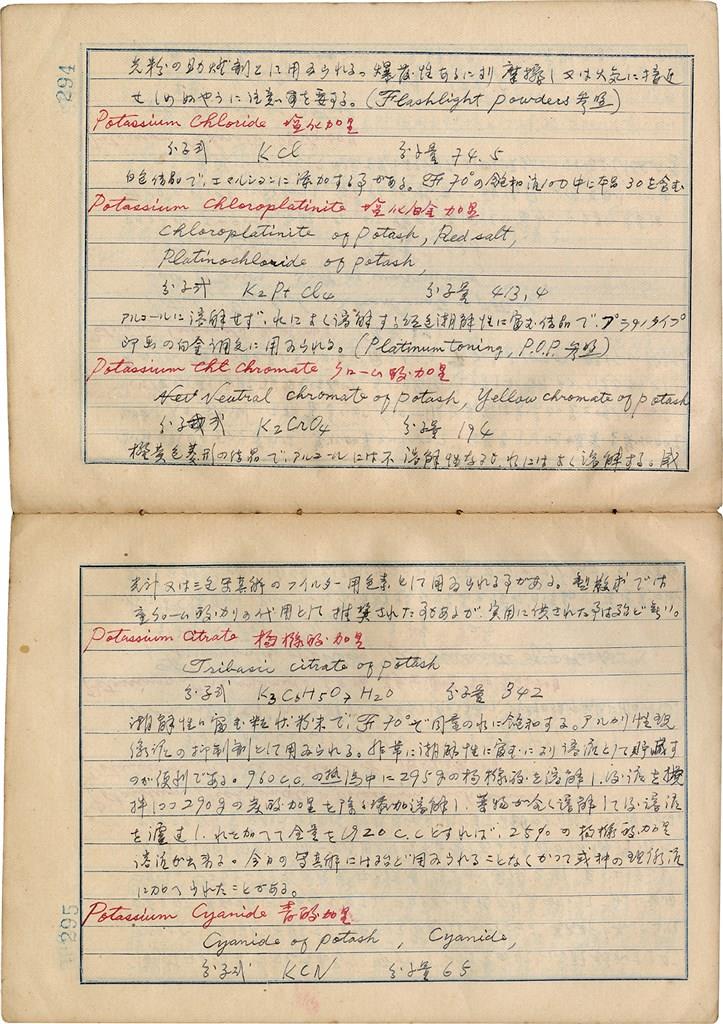 294
光粉の助燃剤として用ゐられる。爆発性あるにより摩擦し又は火気に接近
せしめぬやうに注意 を要する。(Flashlight powders 参照)
Potassium Chloride 塩化加里
分子式 KCl 分子量 74.5
白色結品で、エマルションに添加する事がある。 70°の飽和液100中に本品30を含む
Potassium Chloroplatinite 塩化白金加里
Chloroplatinite of potash, Red salt,
Platinochloride of potash,
分子式 K2PtCl4 分子量 413.4
アルコールに溶解せず、水によく溶解する紅色潮解性に富む結晶で、プラチノタイプ
印画の白金調色に用ゐられる。(Platinum toning, P.O.P. 参照)
Potassium Chromate クローム酸加里
Neutral chromate of potash, Yellow chromate of potash
分子式 K2CrO4 分子量 194
橙黄色菱形の結晶で、アルコールには不溶解性なるも、水にはよく溶解する。感
光計又は三色写真術のフイルター用色素として用ゐられる事がある。 では
重クローム酸カリの代用として推奨された事があるが、実用に供された事は殆ど無い。
Potassium Citrate 枸櫞酸加里
Tribasic citrate of potash
分子式 K3C6H5O7 H2O 分子量 342
潮解性に富む粒状粉末で、 70°で同量の水に飽和する。アルカリ性現
像液の抑制剤として用ゐられる。非常に潮解性に富むにより溶液として貯蔵す
るのが便利である。960c.c.の熱湯中に295gの枸櫞酸を溶解し、後液を攪
拌しつつ290gの炭酸加里を除々に添加溶解し、薬物が全く溶解して後溶液
を濾過し、水を加へて全量を1920c.c.とすれば、25%の枸櫞酸加里
溶液が出来る。今日の写真術には殆ど用ゐられることなくかつて或種の現像液
に加へられたことがある。
295
Potassium Cyanide 青酸加里
Cyanide of potash, Cyanide,
分子式 KCN 分子量 65